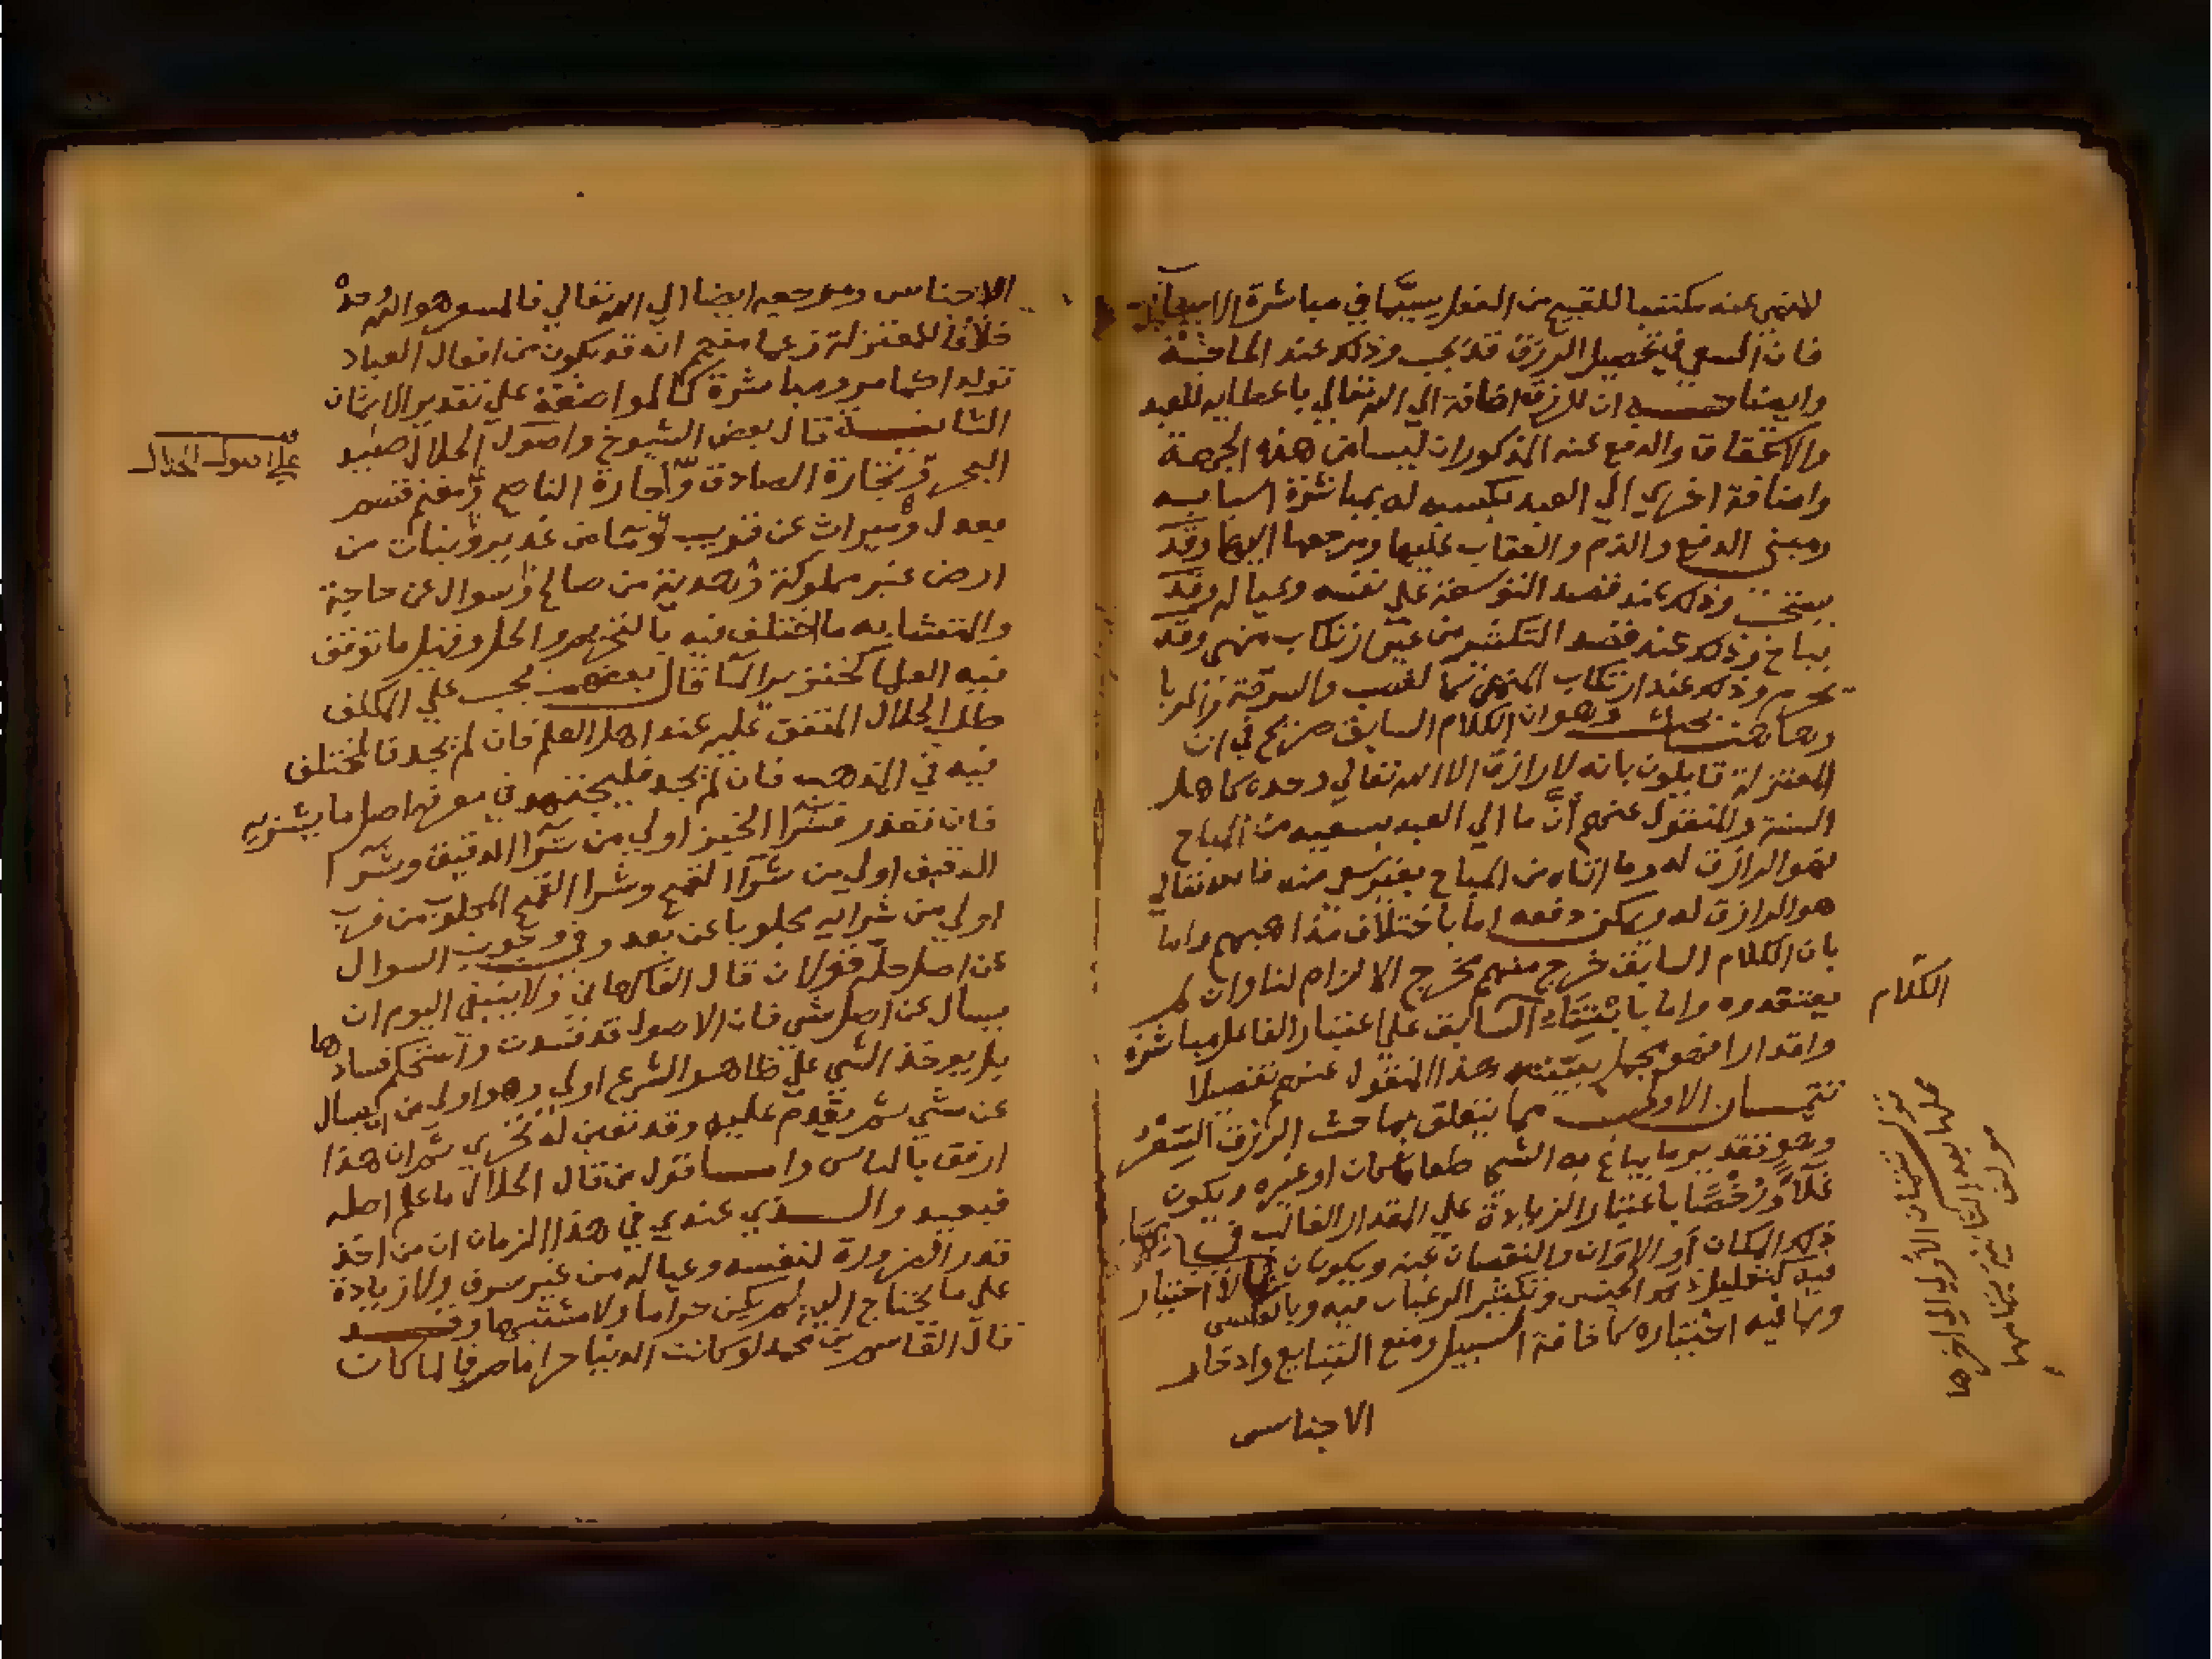 لانهى عنه مكتسبا للقبيح من الفعل سيما في مباشرة الاسباب
فان السعي في تحصيل الرزق قد يجب وذلك عند الحاجة
وايضا ان للرزق اضافة الي الله تعالي باعطايه للعبد
والاستحقاق والدفع عنه المذكوران ليسا من هذه الجهة
واضافة اخري الي العبد يكسبه له بمباشرة اسبابه
ومبني الدفع والذم والعقاب عليها ومرجعها اليها وقد
يستحب وذلك عند قصد التوسعة علي نفسه وعياله وقد
يباح وذلك عند قصد التكثير من غير ارتكاب منهي وقد
يحرم وذلك عند ارتكاب المنهي كالغصب والسرقة والربا
وهاهنا بحث وهو ان الكلام السابق صريح في ان
المعتزلة قايلون بانه لا رازق الا الله تعالي وحده كاهل
السنة والمنقول عنهم أنَّ ما الي العبد بسعيه من المباح
فهو الرازق له وما اتاه من المباح بغير سعي منه فالله تعالي
هو الرازق له ويمكن دفعه اما باختلاف مذاهبهم واما
بان الكلام السابق خرج منهم مخرج الالزام لنا وان لم
يعتقدوه واما بابتناء السابق علي اعتبار الفاعل مباشرة
واقدارا فهو مجمل بينته هذا المنقول عنهم تفصيلا
تتمتان الاولي مما يتعلق بمباحث الرزق السِّعْر
وهو تقدير ما يباع به الشي طعاما كان او غيره ويكون
غلاً ورُخْصًا باعتبار الزيادة علي المقدار الغالب في
ذلك المكان أو الاوان والنقصان عنه ويكونان بما لا اختيار
فيه كتقليل ذلك الجنس وتكثير الرغبات فيه وبالعكس
وبما فيه اختياره كاخافة السبيل ومنع التبايع وادخار
الاجناس
الكلام
الاجناس ومرجعه ايضا الي الله تعالي فالمسعر هو الله وحده
خلافا للمعتزلة زعما منهم انه قد يكون من افعال العباد
تولدا كما مر ومباشرة كالمواضعة علي تقدير الاثمان
الثانية قال بعض الشيوخ واصول الحلال صيد
البحر وتجارة الصادق واجارة الناصح ومغنم قسم
بعدل وميراث عن قريب وما من غدير ونبات من
ارض غير مملوكة وهدية من صالح وسوال عن حاجة
والمتشابه ما اختلف فيه بالتحريم والحل وقيل ما توقف
فيه العلما كخنزير الما قال بعضهم يجب علي المكلف
طلب الحلال المتفق عليه عند اهل العلم فان لم يجد فالمختلف
فيه في المذهب فان لم يجد فليجتهد في معرفة اصل ما يشتريه
فان تعذر فشرا الخبز اولي من شرا الدقيق وشرا
الدقيق اولي من شرا القمح وشرا القمح المجلوب من قرب
اولي من شرايه مجلوبا عن بعد وفي وجوب السوال
عن اصل حله قولان قال الفاكهاني ولا ينبغي اليوم ان
يسال عن اصل شي فان الاصول قد فسدت واستحكم فسادها
بل يوخذ الشي علي ظاهر الشرع اولي وهو اولي من ان يسال
عن شي ثم يقدم عليه وقد تعين له تحري ثم ان هذا
ارفق بالناس واما قول من قال الحلال ما علم اصله
فبعيد والذي عندي في هذا الزمان ان من اخذ
قدر الضرورة لنفسه وعياله من غير سرف ولا زيادة
علي ما يحتاج اليه لم يكن حراما ولا مشتبها وقد
قال القاسم بن محمد لو كانت الدنيا حراما صرفا لما كان
علي اصول الحلال